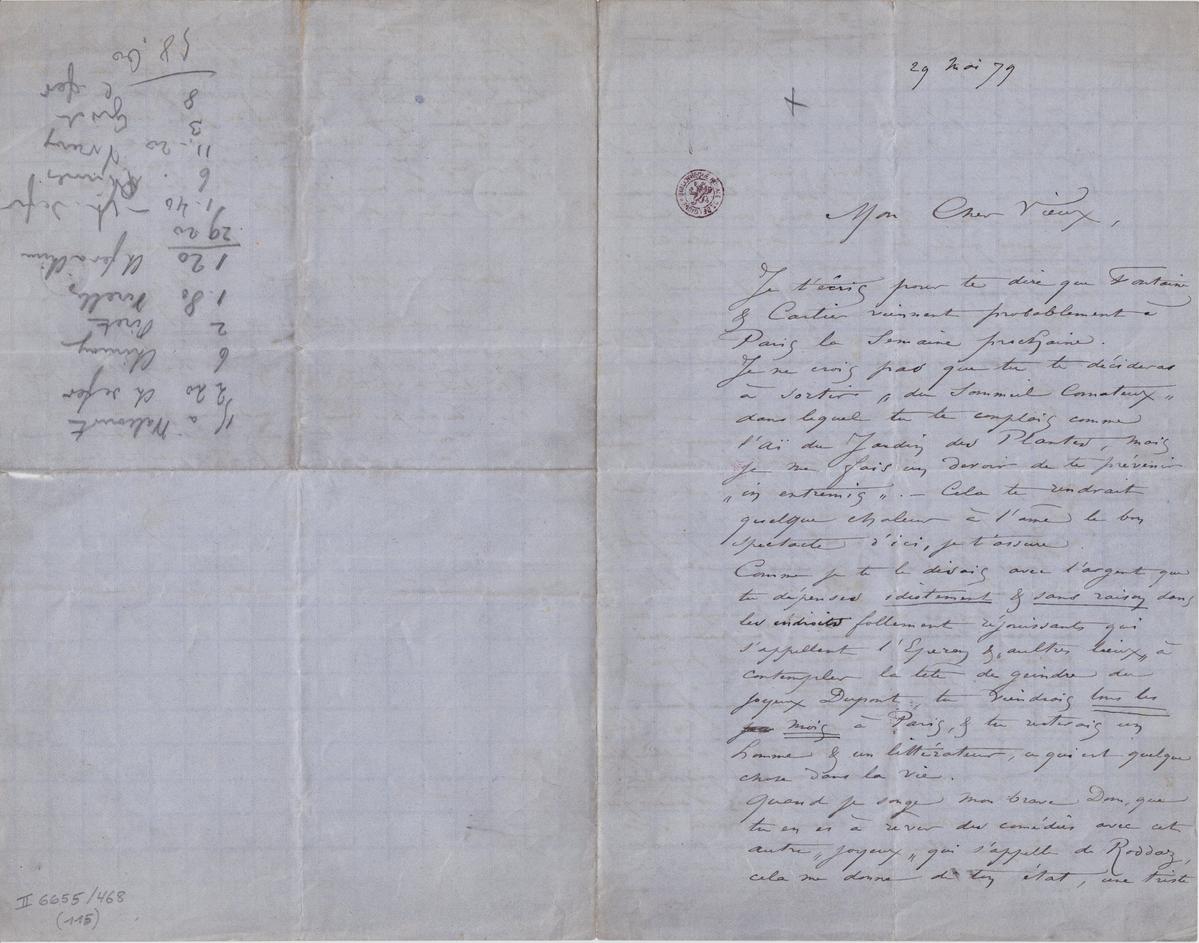 29 Mai 79
Mon Cher Vieux,
Je t'écris pour te dire que Fontaine
& Cartier viennent probablement à
Paris la Semaine prochaine.
Je ne crois pas que tu te décideras
à sortir „ du Sommeil Comateux „
dans lequel tu te complais comme
l'aï du Jardin des Plantes, mais
je me fais un devoir de te prévenir
„ in extremis „. — Cela te rendrait
quelque chaleur à l'âme le bon
spectacle d'ici, je t'assure.
Comme je te le disais avec l'argent que
tu dépenses idiotement & sans raison dans
les endroits follement réjouissants qui
s'appellent l'Eperon & „aultres lieux„ à
contempler la tête de geindre du
joyeux Dupont, tu viendrais tous les
mois à Paris, & tu resterais un
homme & un littérateur, ce qui est quelque
chose dans la vie.
Quand je songe mon brave Dom, que
tu en es à rêver des comédies avec cet
autre „ joyeux „ qui s'appelle de Roddaz,
cela me donne de ton état, une triste
a Walcourt
2 20 ch de fer
6 Chimay
2
1.80
1 20
29 20
1.40
6
11.20
3
8
58,60
II 6655/468
(115)